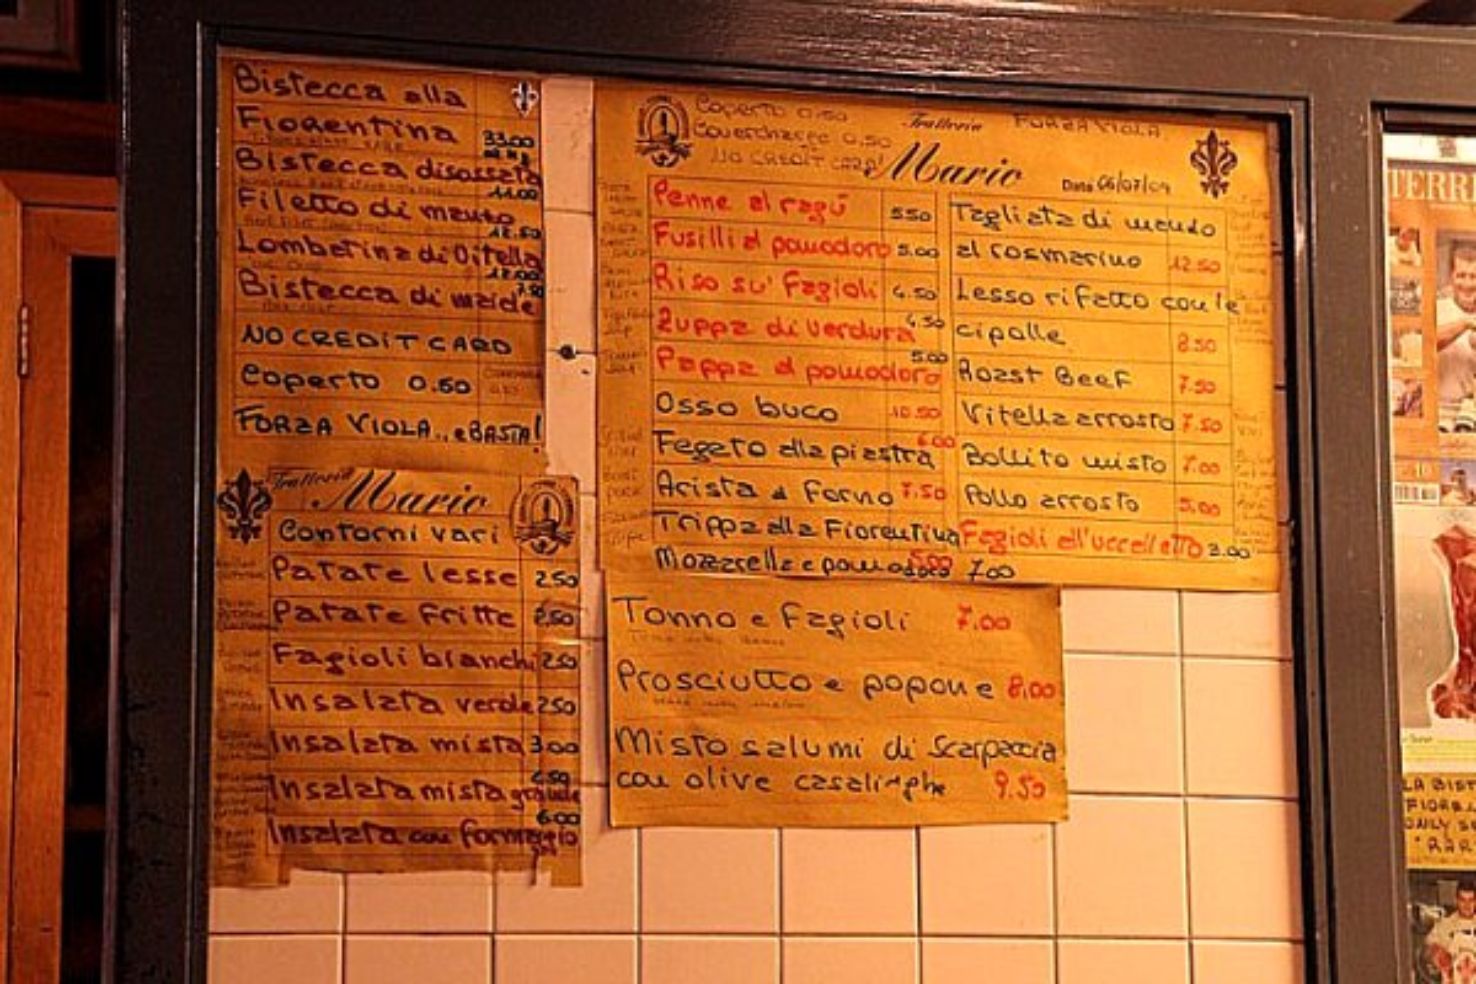 Bistecca alla
Fiorentina 33.00
Bistecca disossata
44.00
Filetto di manzo
12.50
Lombatina di Vitella
12.00
Bistecca di maiale
7.50
NO CREDIT CARD
Coperto 0.50
FORZA VIOLA.. e BASTA!
Trattoria
Mario
Contorni vari
Patate lesse 250
Patate fritte 250
Fagioli bianchi 250
Insalata verde 250
Insalata mista 300
Insalata mista grande
4.50
Insalata con formaggio
6.00
Coperto 0.50
Covercharge 0.50
NO CREDIT CARD!
Trattoria
Mario
FORZA VIOLA
Data 06/07/09
Penne al ragù 550
Fusilli al pomodoro 5.00
Riso su' Fagioli 4.50
Zuppa di verdura 4.50
Pappa al pomodoro 5.00
Osso buco 10.50
Fegato alla piastra 6.00
Arista al Forno 7.50
Trippa alla Fiorentina
Mozzarella e pomodoro 700
Tagliata di manzo
al rosmarino 12.50
Lesso rifatto con le
cipolle 8.50
Roast Beef 7.50
Vitella arrosto 7.50
Bollito misto 7.00
Pollo arrosto 5.00
Fagioli all'uccelletto 3.00
Tonno e Fagioli 7.00
Prosciutto e popone 8.00
Misto salumi di Scarpaccia
con olive casalinghe 9.50
TERR
LA BIST
FIORE
ONLY S